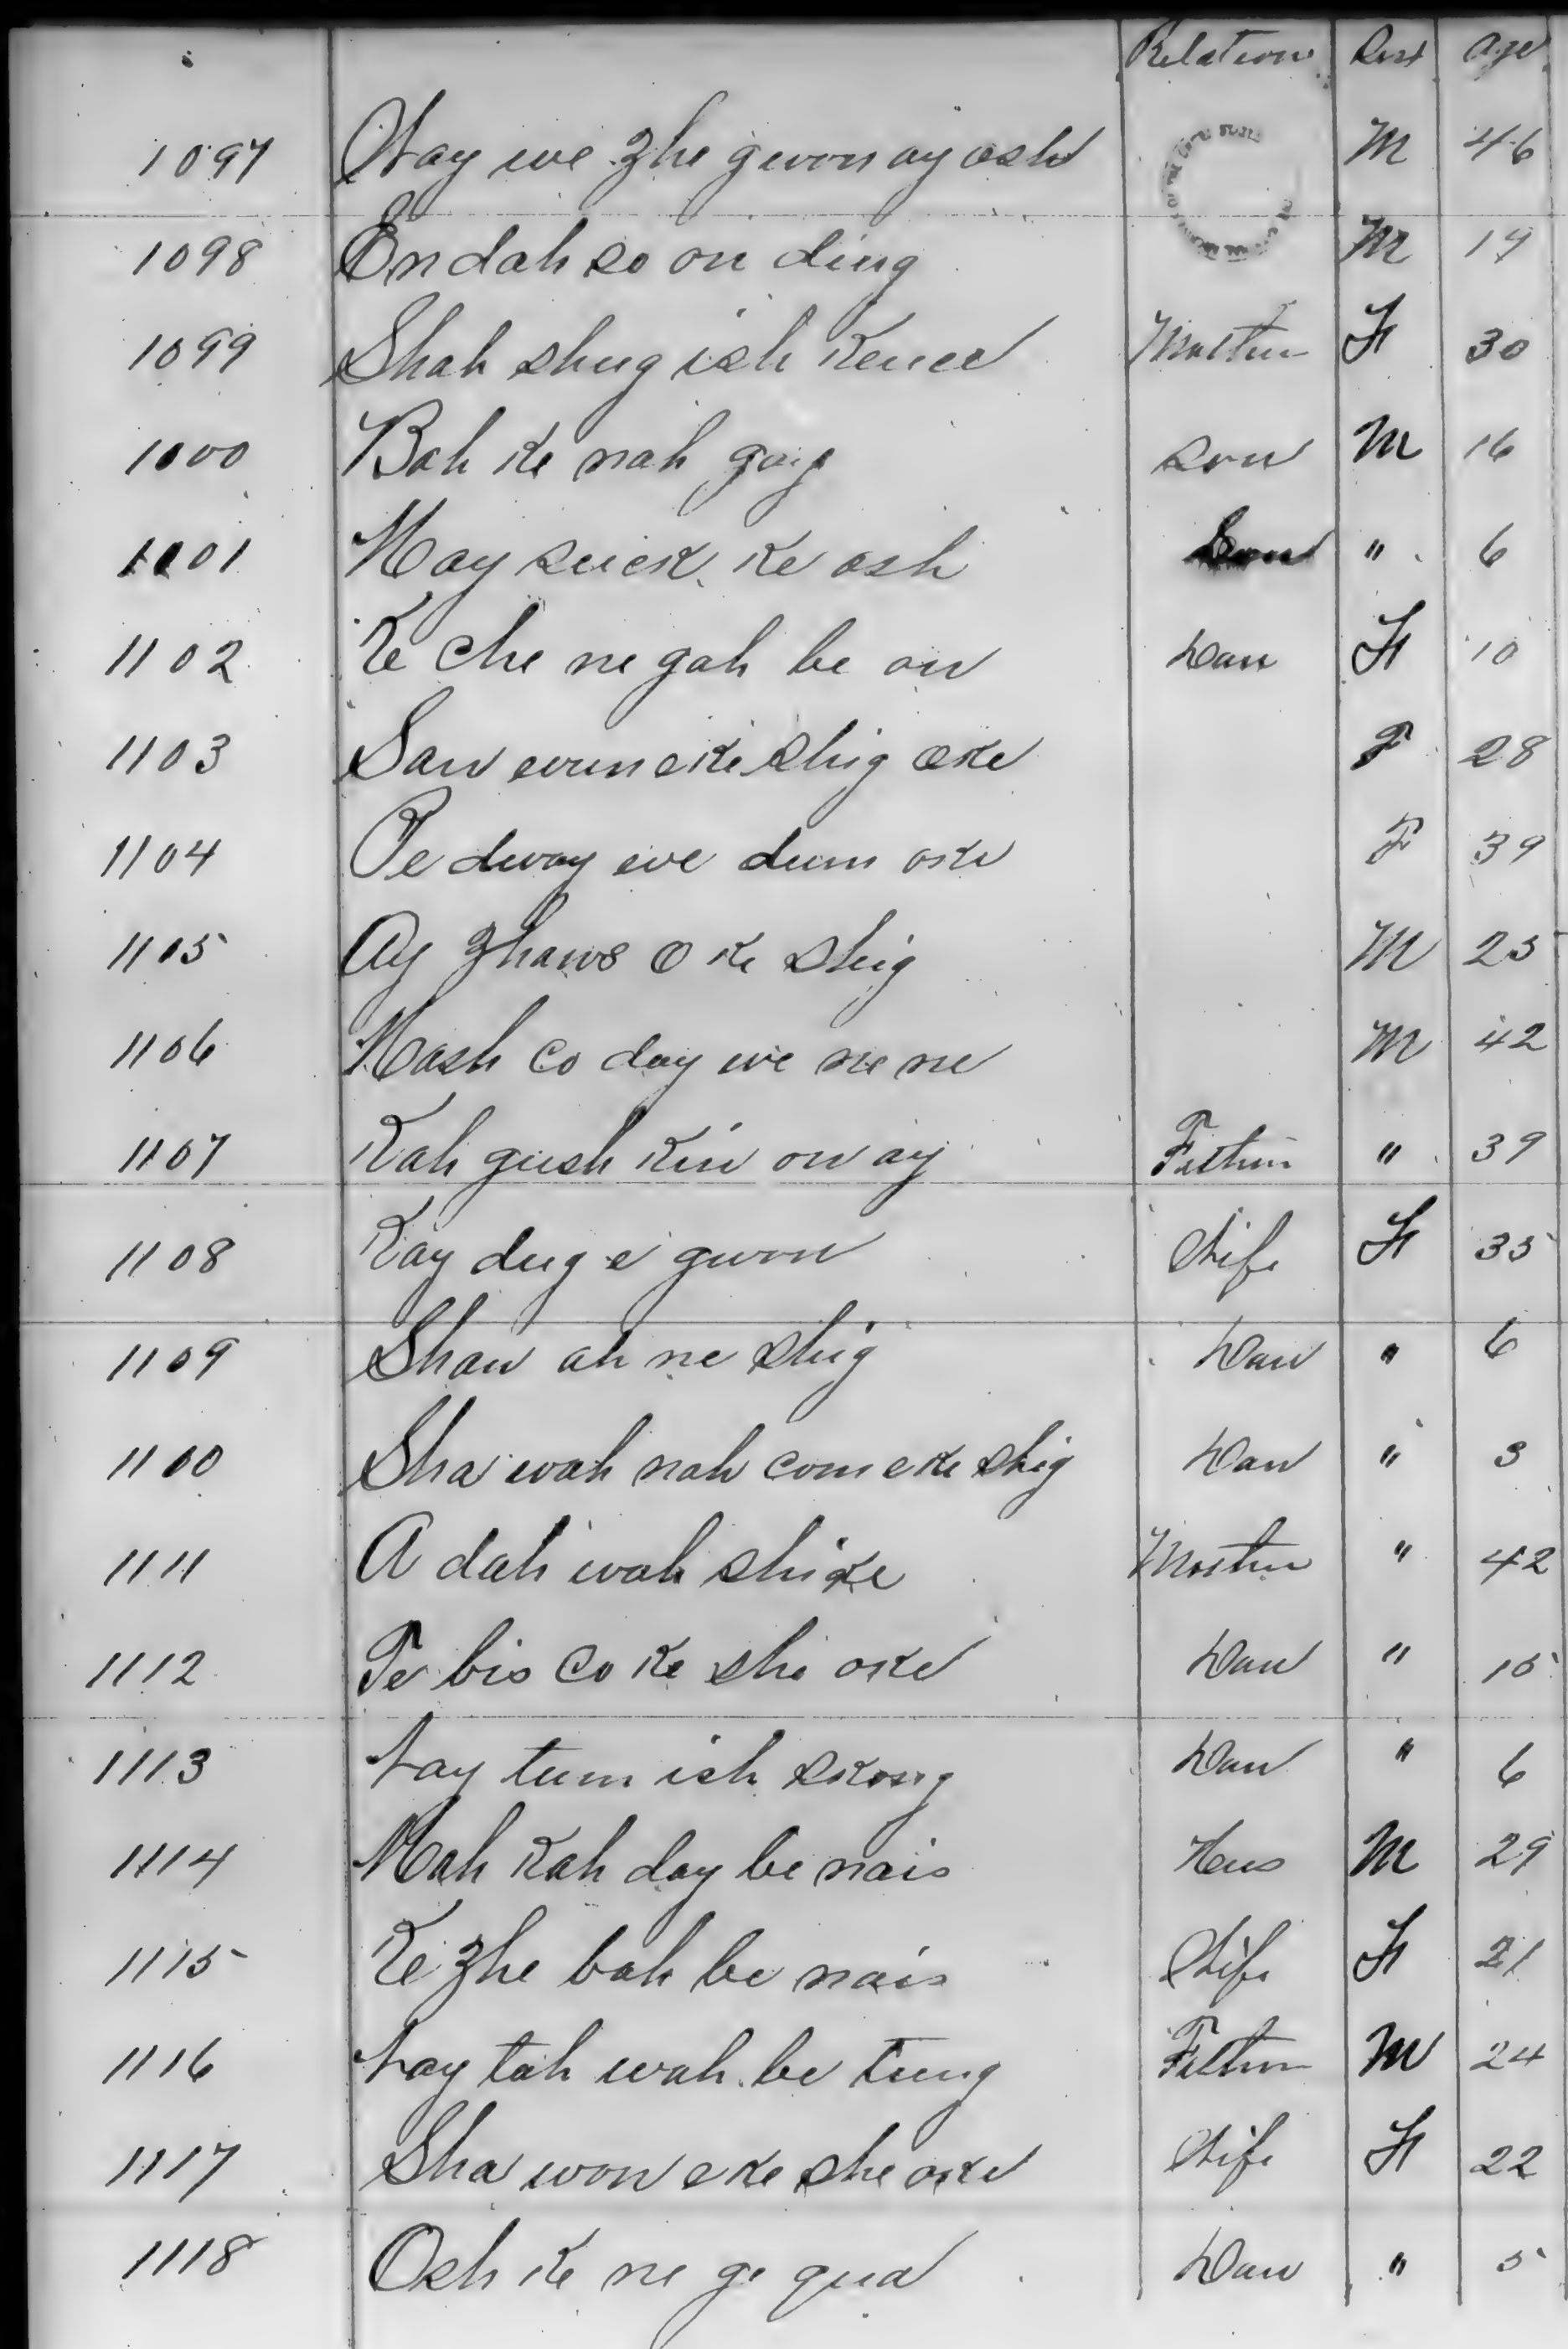 Relation Sex Age
1097 Way we zhe gwon ay osh M 46
1098 En dah so on ding M 17
1099 Shah shug ish kence Mother F 30
1000 Bah ke nah gay Son M 16
1101 May suick ke osh Son " 6
1102 Ke che ne gah be on Dau F 10
1103 Saw wun e ke shig oke F 28
1104 Pe dway we dum oke F 39
1105 Ay zhaws o ke shig M 25
1106 Mash co day we ne ne M 42
1107 Kah gush kin on ay Father " 39
1108 Kay dug e gwon Wife F 35
1109 Shaw ah ne shig Dau " 6
1100 Sha wah nah com e ke shig Dau " 3
1111 A dah wah shike Mother " 42
1112 Te bis co ke she oke Dau " 15
1113 Nay tum ish skong Dau " 6
1114 Mah kah day be nais Hus M 29
1115 Ke zhe bah be nais Wife F 21
1116 Nay tah wah be tung Father M 24
1117 Sha won e ke she oke Wife F 22
1118 Osh ke ne ge qua Dau " 5